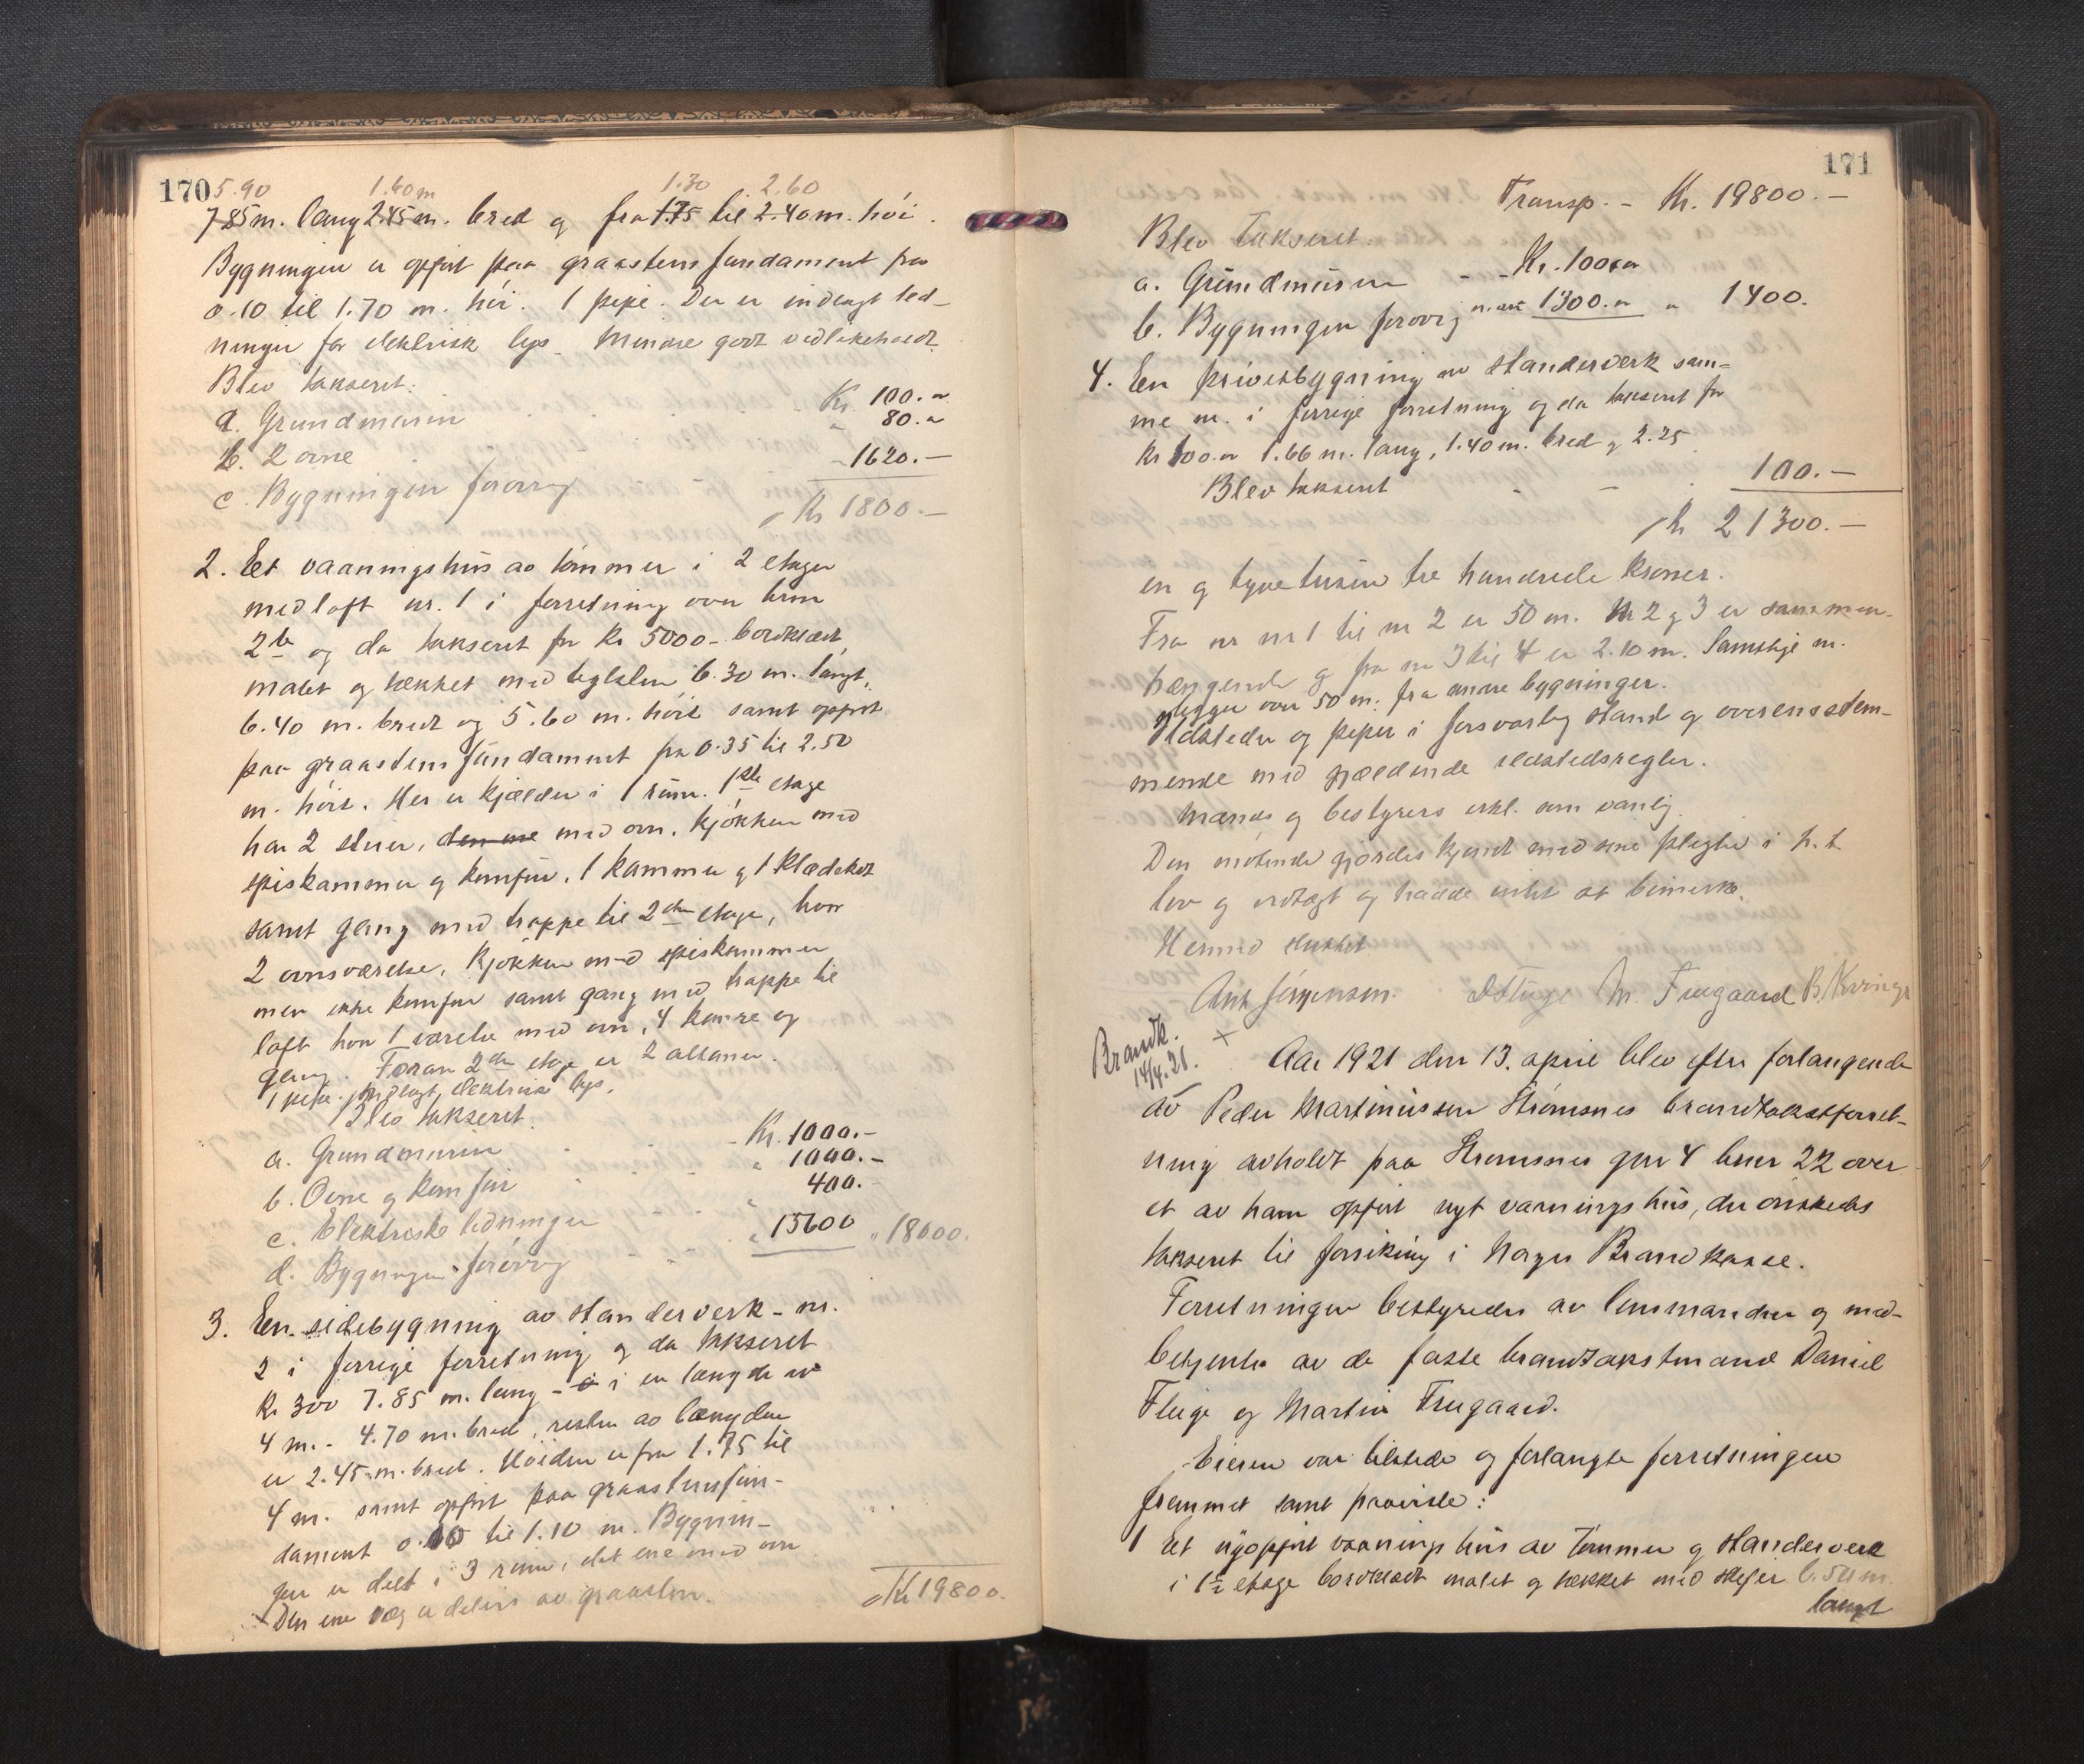 170
5.90 1.60 m 1.30 2.60
7.85 m. lang 2.45 m. bred og fra 1.75 til 2.40 m. höi.
Bygningen er opfört paa graastens fundament fra
0.10 til 1.70 m. höi. 1 pipe. Der er indlagt led-
ninger for elektrisk lys. Mindre godt vedlikeholdt.
Blev takseret:
a. Grundmuren Kr. 100.-
b. 2 ovne " 80.-
c. Bygningen forövrig - 1620.-
Kr 1800.-
2. Et vaaningshus av tömmer i 2 etager
med loft nr. 1 i forretning over brnr
2 og da takseret for kr 5000- bordklædt,
malet og tækket med teglsten 6.30 m. langt,
6.40 m. bredt og 5.60 m. höit samt opfört
paa graastens fundament fra 0.35 til 2.50
m. höit. Her er kjælder i 1 rum. 1ste etage
har 2 stuer, den ene med ovn. kjökken med
spiskammer og komfur. 1 kammer og 1 klædeskot
samt gang med trappe til 2den etage, hvor
2 ovnsværelse, kjökken med spiskammer
men ikke komfur samt gang med trappe til
loft hvor 1 værelse med ovn, 4 kamre og
gang. Foran 2den etage er 2 altaner.
1 pipe. Indlagt elektrisk lys.
Blev takseret.
a. Grundmuren Kr. 1000.-
b. Ovne og komfur " 1000.-
c. Elektriske ledninger " 400.-
d. Bygningen forövrig " 15600 " 18000.
3. En sidebygning av standerverk - nr.
2 i forrige forretning og da takseret
kr 300 7.85 m. lang - i en længde av
4 m. - 4.70 m. bred, resten av længden
er 2.45 m. bred. Höiden er fra 1.75 til
4 m. samt opfört paa graastensfun-
dament 0.10 til 1.10 m. Bygnin-
gen er delt i 3 rum, det ene med ovn
Den ene væg er delvis av graasten.
Kr 19800.
171
Transp. - Kr. 19800.-
Blev takseret:
a. Grundmuren - - Kr. 100.-
b. Bygningen forövrig 1300.- " 1400.
4. En privetbygning av standerverk sam-
me nr. i forrige forretning og da takseret for
kr 100.- 1.66 m. lang, 1.40 m. bred og 2.25
Blev takseret - - 100.-
Kr 21300.-
en og tyve tusen tre hundrede kroner.
Fra nr 1 til nr 2 er 50 m. Nr 2 og 3 er sammen-
hængende og fra nr 3 til 4 er 2.10 m. Samtlige nr.
ligger over 50 m. fra andre bygninger.
Ildsteder og piper i forsvarlig stand og overensstem-
mende med gjældende ildstedsregler.
Mænds og bestyrers erkl. som vanlig.
Den mötende gjordes kjendt med sine pligter i h.t.
lov og vedtægt og hadde intet at bemerke.
Hermed sluttet
Ant Jörgensen. D Fluge M. Fregaard B/Kvinge
Brandk.
14/4.21.
Aar 1921 den 13. april blev efter forlangende
av Peder Martinussen Strömsnes brandtakstforret-
ning avholdt paa Strömsnes gnr 4 brnr 22 over
et av ham opfört nyt vaaningshus, der önskedes
takseret til forsikring i Norges Brandkasse.
Forretningen bestyredes av lensmanden og med-
betjentes av de faste brandtakstmænd Daniel
Fluge og Martin Fregaard.
Eieren var tilstede og forlangte forretningen
fremmet samt paaviste:
1 Et nyopfört vaaningshus av tömmer og standerverk
i 1½ etage bordklædt malet og tækket med skifer 6.50 m.
langt